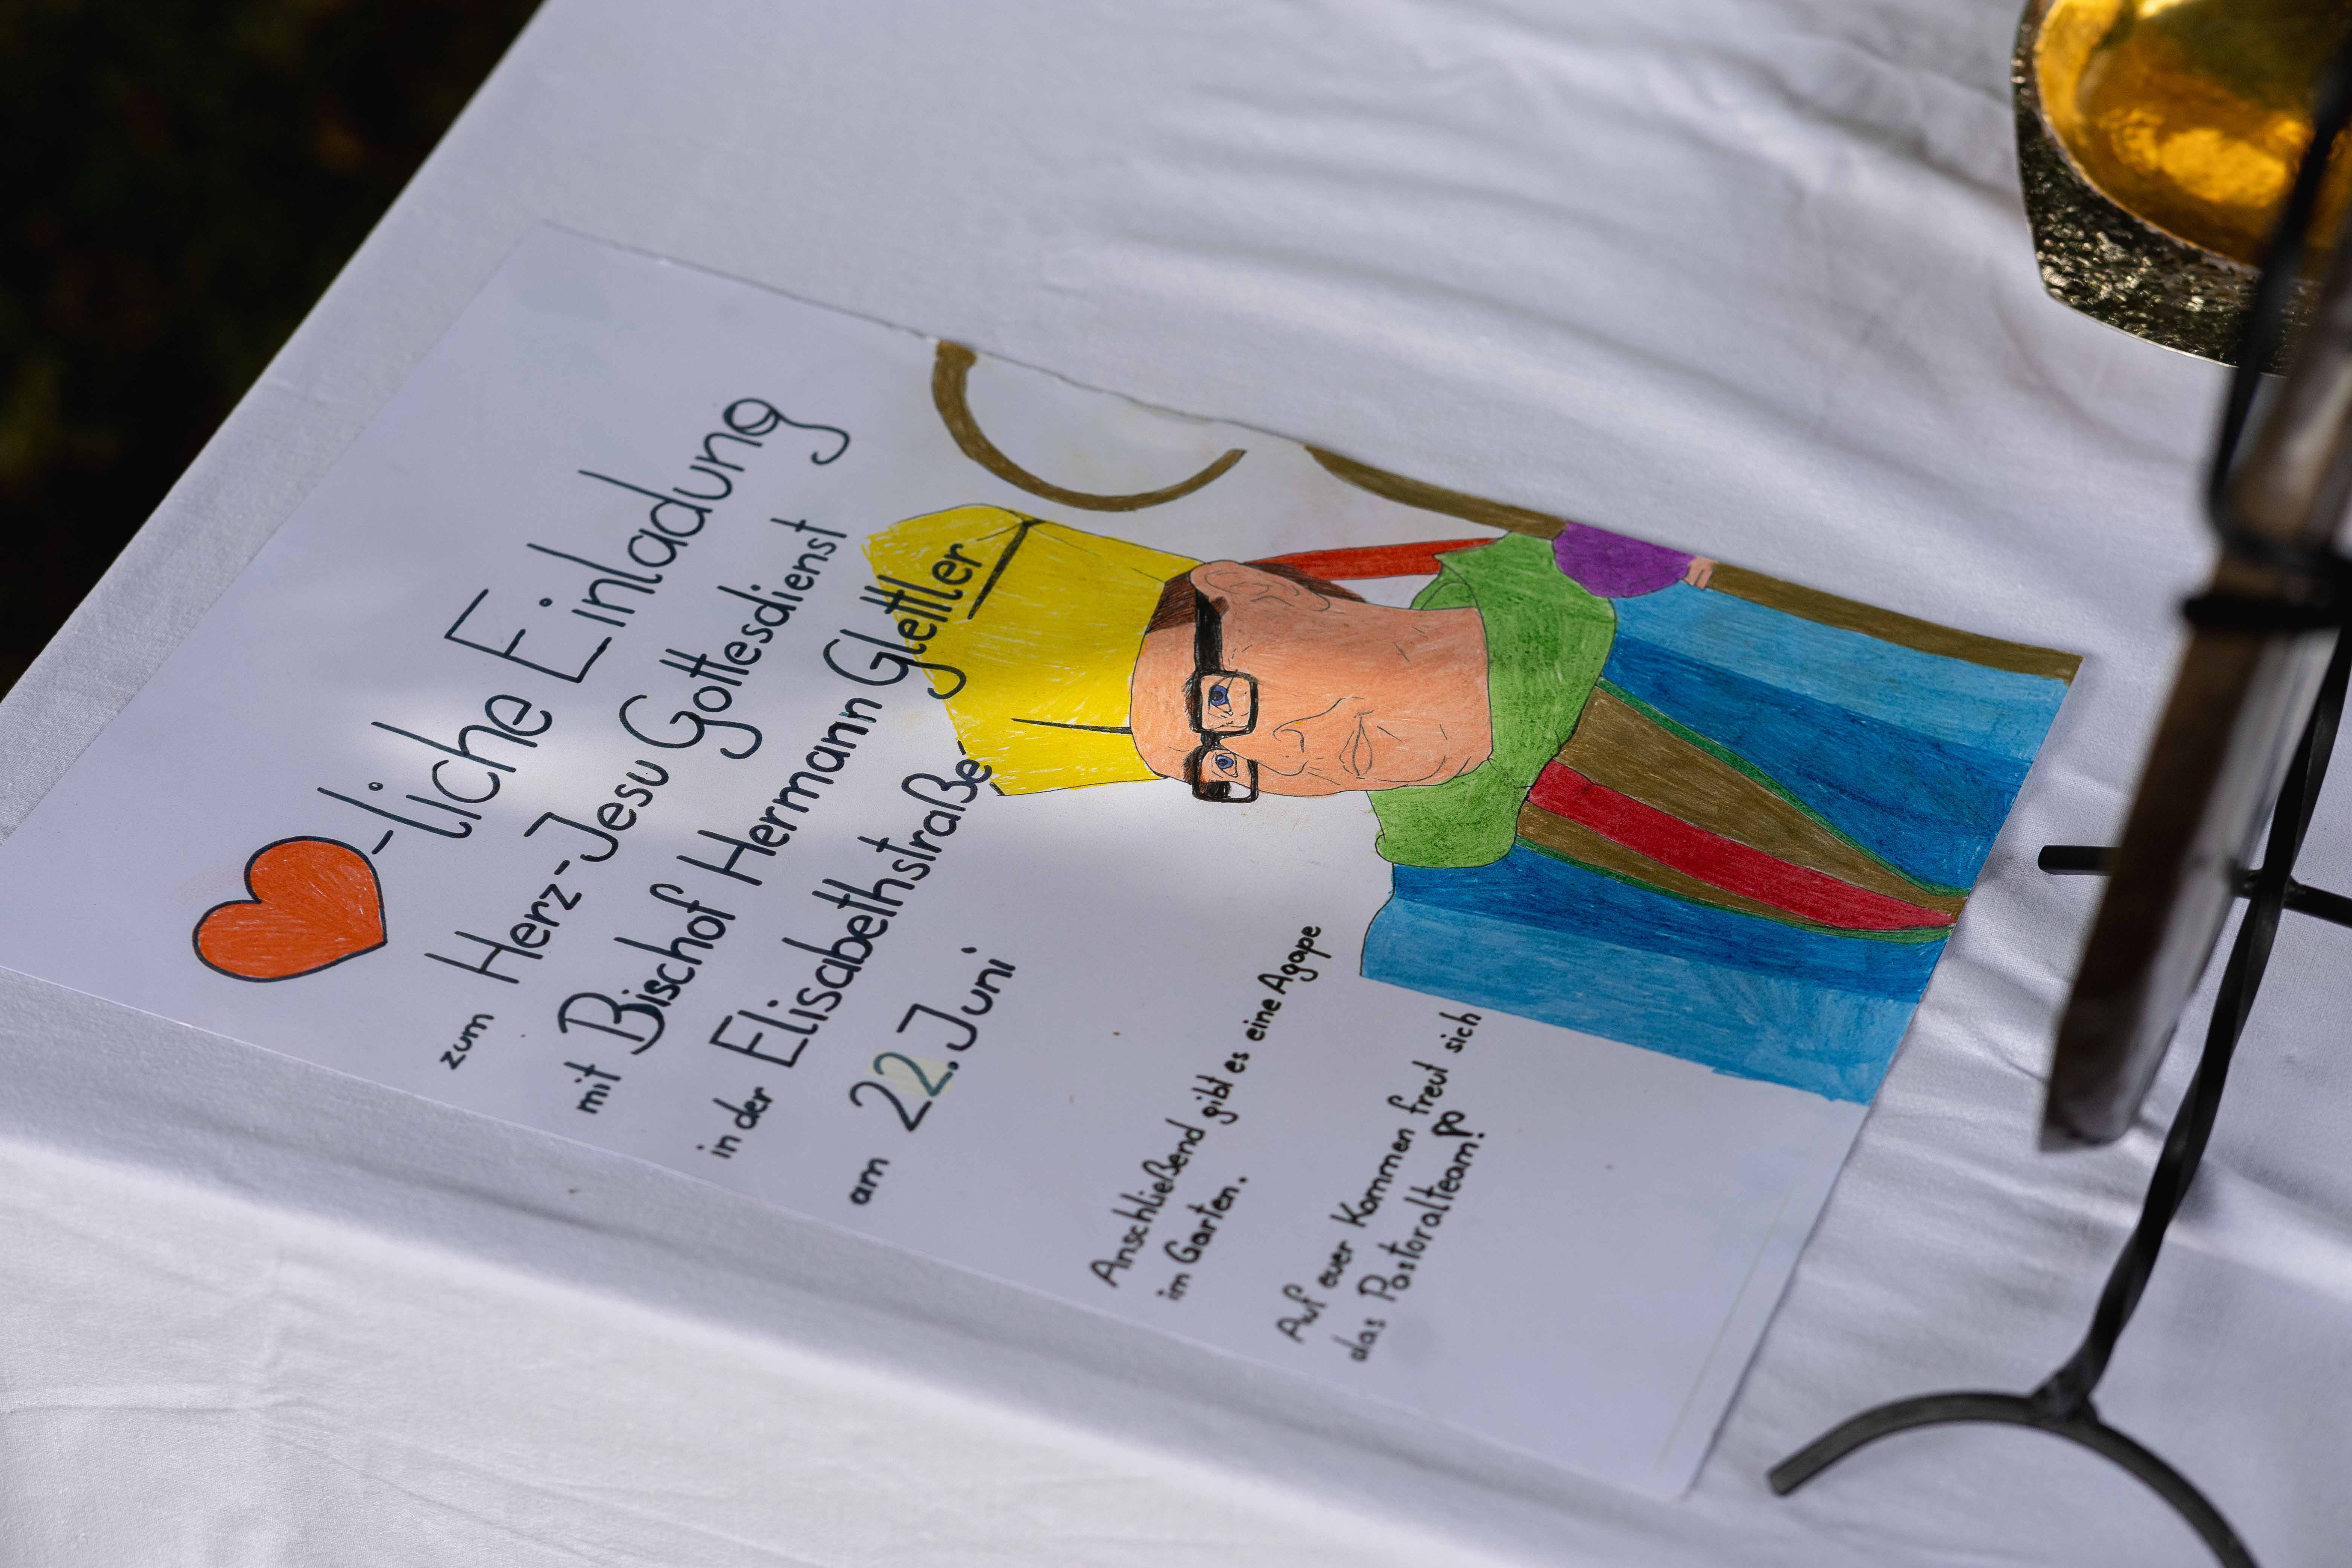 -liche Einladung
zum Herz-Jesu Gottesdienst
mit Bischof Hermann Glettler
in der Elisabethstraße
am 22. Juni
Anschließend gibt es eine Agape
im Garten.
Auf euer Kommen freut sich
das Pastoralteam!